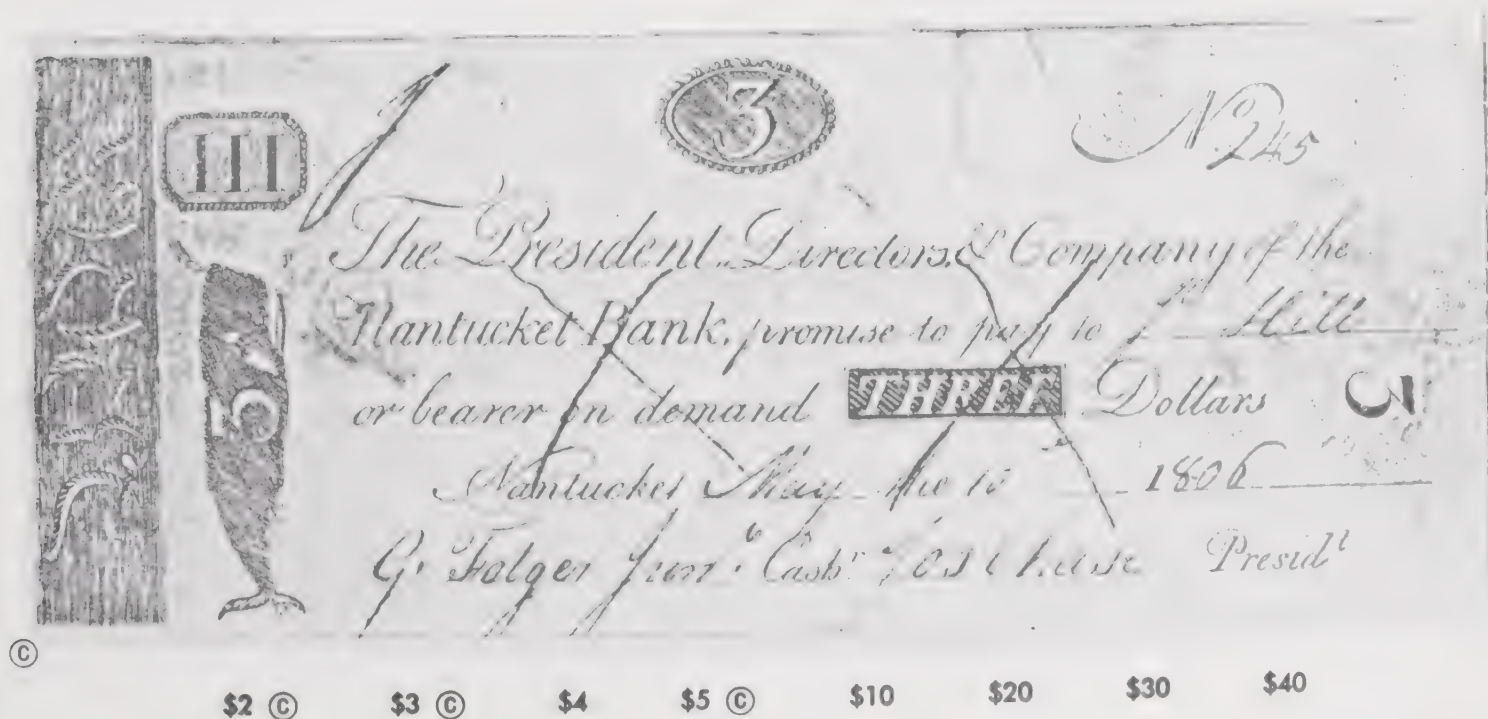 III
3
No 245
The President, Directors, & Company of the
Nantucket Bank, promise to pay to Hill
or bearer on demand THREE Dollars 3
Nantucket May the 10 1806
G. Folger Junr. Cashr. Chase Presidt
3
©
$2 © $3 © $4 $5 © $10 $20 $30 $40